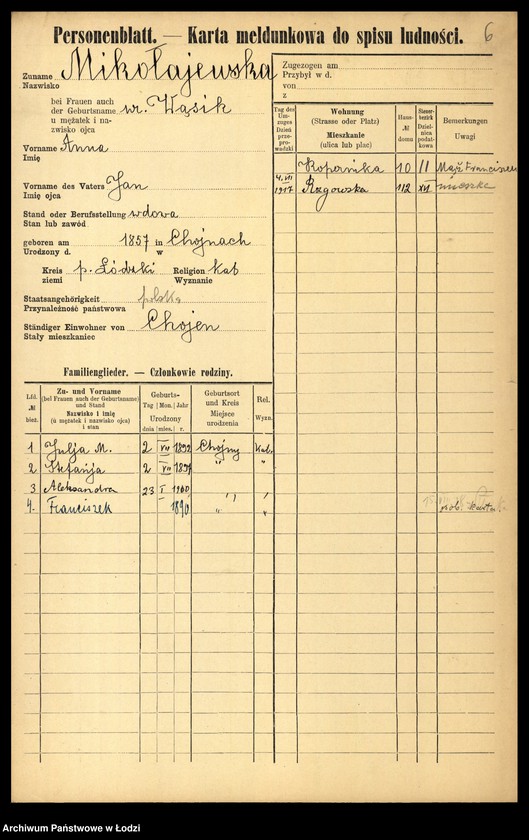 Personenblatt. — Karta meldunkowa do spisu ludności.
6
Zuname Mikołajewska
Nazwisko
bei Frauen auch
der Geburtsname
u mężatek i na-
zwisko ojca
ur. Wąsik
Vorname Anna
Imię
Vorname des Vaters Jan
Imię ojca
Stand oder Berufsstellung wdowa
Stan lub zawód
geboren am 1857 in Chojnach
Urodzony d. w
Kreis p. Łódzki Religion kat
ziemi Wyznanie
Staatsangehörigkeit polska
Przynależność państwowa
Ständiger Einwohner von Chojen
Stały mieszkaniec
Zugezogen am
Przybył w d.
von
z
Tag des Um-zuges Dzień prze-prowadzki
Wohnung (Strasse oder Platz) Mieszkanie (ulica lub plac)
Haus- № domu
Steuer-bezirk Dziel-nica podat-kowa
Bemerkungen Uwagi
Kopernika 10 II Mąż Franciszek
4.VII 1917 Rzgowska 112 XVI mieszka
Familienglieder. — Członkowie rodziny.
Lfd. № bież.
Zu- und Vorname (bei Frauen auch der Geburtsname) und Stand Nazwisko i imię (u mężatek i nazwisko ojca) i stan
Geburts- Tag | Mon. | Jahr Urodzony dnia | mies. | r.
Geburtsort und Kreis Miejsce urodzenia
Rel. Wyzn.
1 Julja M. 2 VII 1892 Chojny Kat.
2 Stefanja 2 VII 1897 " "
3 Aleksandra 23 I 1900 " "
4. Franciszek 1890 " "
Archiwum Państwowe w Łodzi